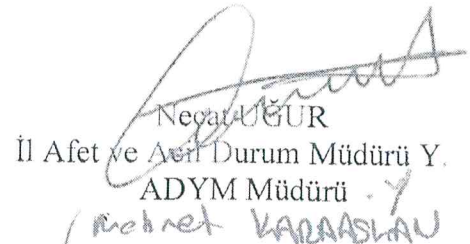 Necat UĞUR
İl Afet ve Acil Durum Müdürü Y.
ADYM Müdürü . Y
Mehmet KARAASLAN